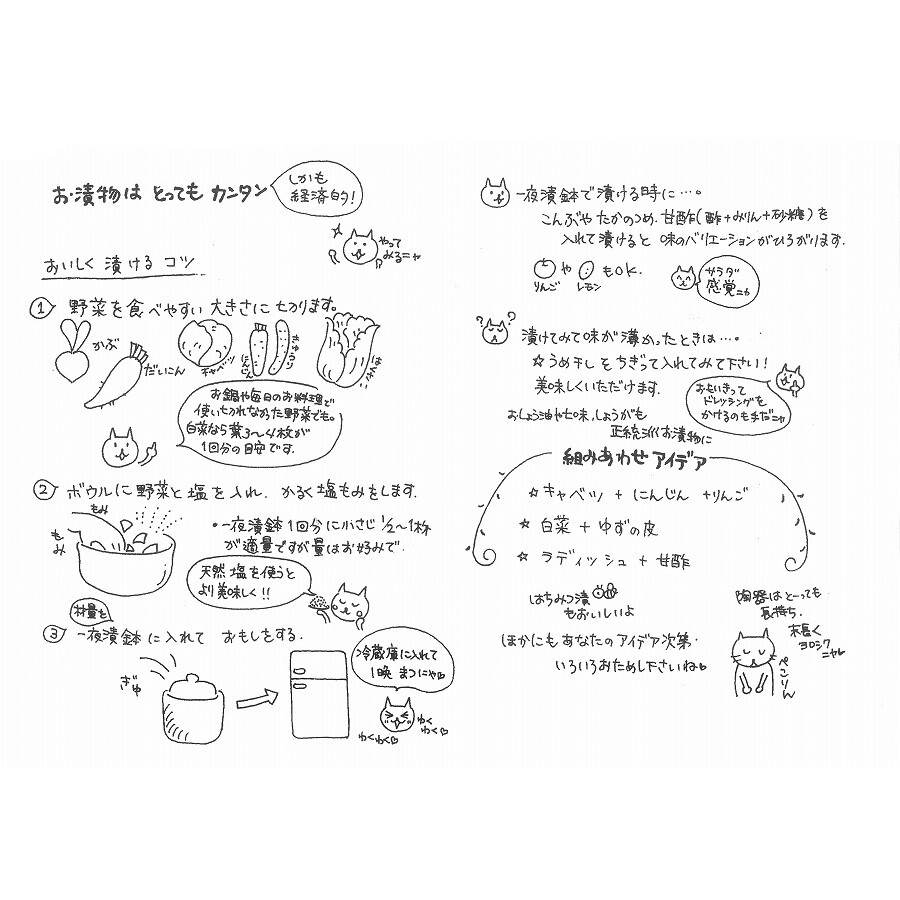 お漬物は とっても カンタン
しかも
経済的!
やって
みるニャ
おいしく 漬ける コツ
① 野菜を食べやすい大きさに切ります。
かぶ
だいこん
キャベツ
にんじん
きゅうり
はくさい
お鍋や毎日のお料理で
使い切れなかった野菜でも。
白菜なら葉3〜4枚が
1回分の目安です。
② ボウルに野菜と塩を入れ、かるく塩もみをします。
もみ
もみ
・一夜漬鉢1回分に小さじ1/2〜1杯
が適量ですが量はお好みで
天然塩を使うと
より美味しく!!
材量を
③ 一夜漬鉢に入れて おもしをする。
ぎゅ
冷蔵庫に入れて
1晩 まつニャ♡
わくわく♡
わく
わく♡
一夜漬鉢で漬ける時に…。
こんぶや たかのつめ、甘酢(酢+みりん+砂糖)を
入れて漬けると 味のバリエーションがひろがります。
りんご や レモン もOK.
サラダ
感覚ニャ
漬けてみて味が薄かったときは…。
☆うめ干しをちぎって入れてみて下さい!
美味しくいただけます。
おもいきって
ドレッシングを
かけるのも手だニャ
おしょう油や七味、しょうがも
正統派お漬物に
組みあわせ アイデア
☆ キャベツ + にんじん +りんご
☆ 白菜 + ゆずの皮
☆ ラディッシュ + 甘酢
はちみつ漬
もおいしいよ
ほかにも あなたの アイデア次第・
いろいろおためし下さいね♡
陶器はとーっても
長持ち.
末長く
ヨロシク
ニャ♡
ぺこりん